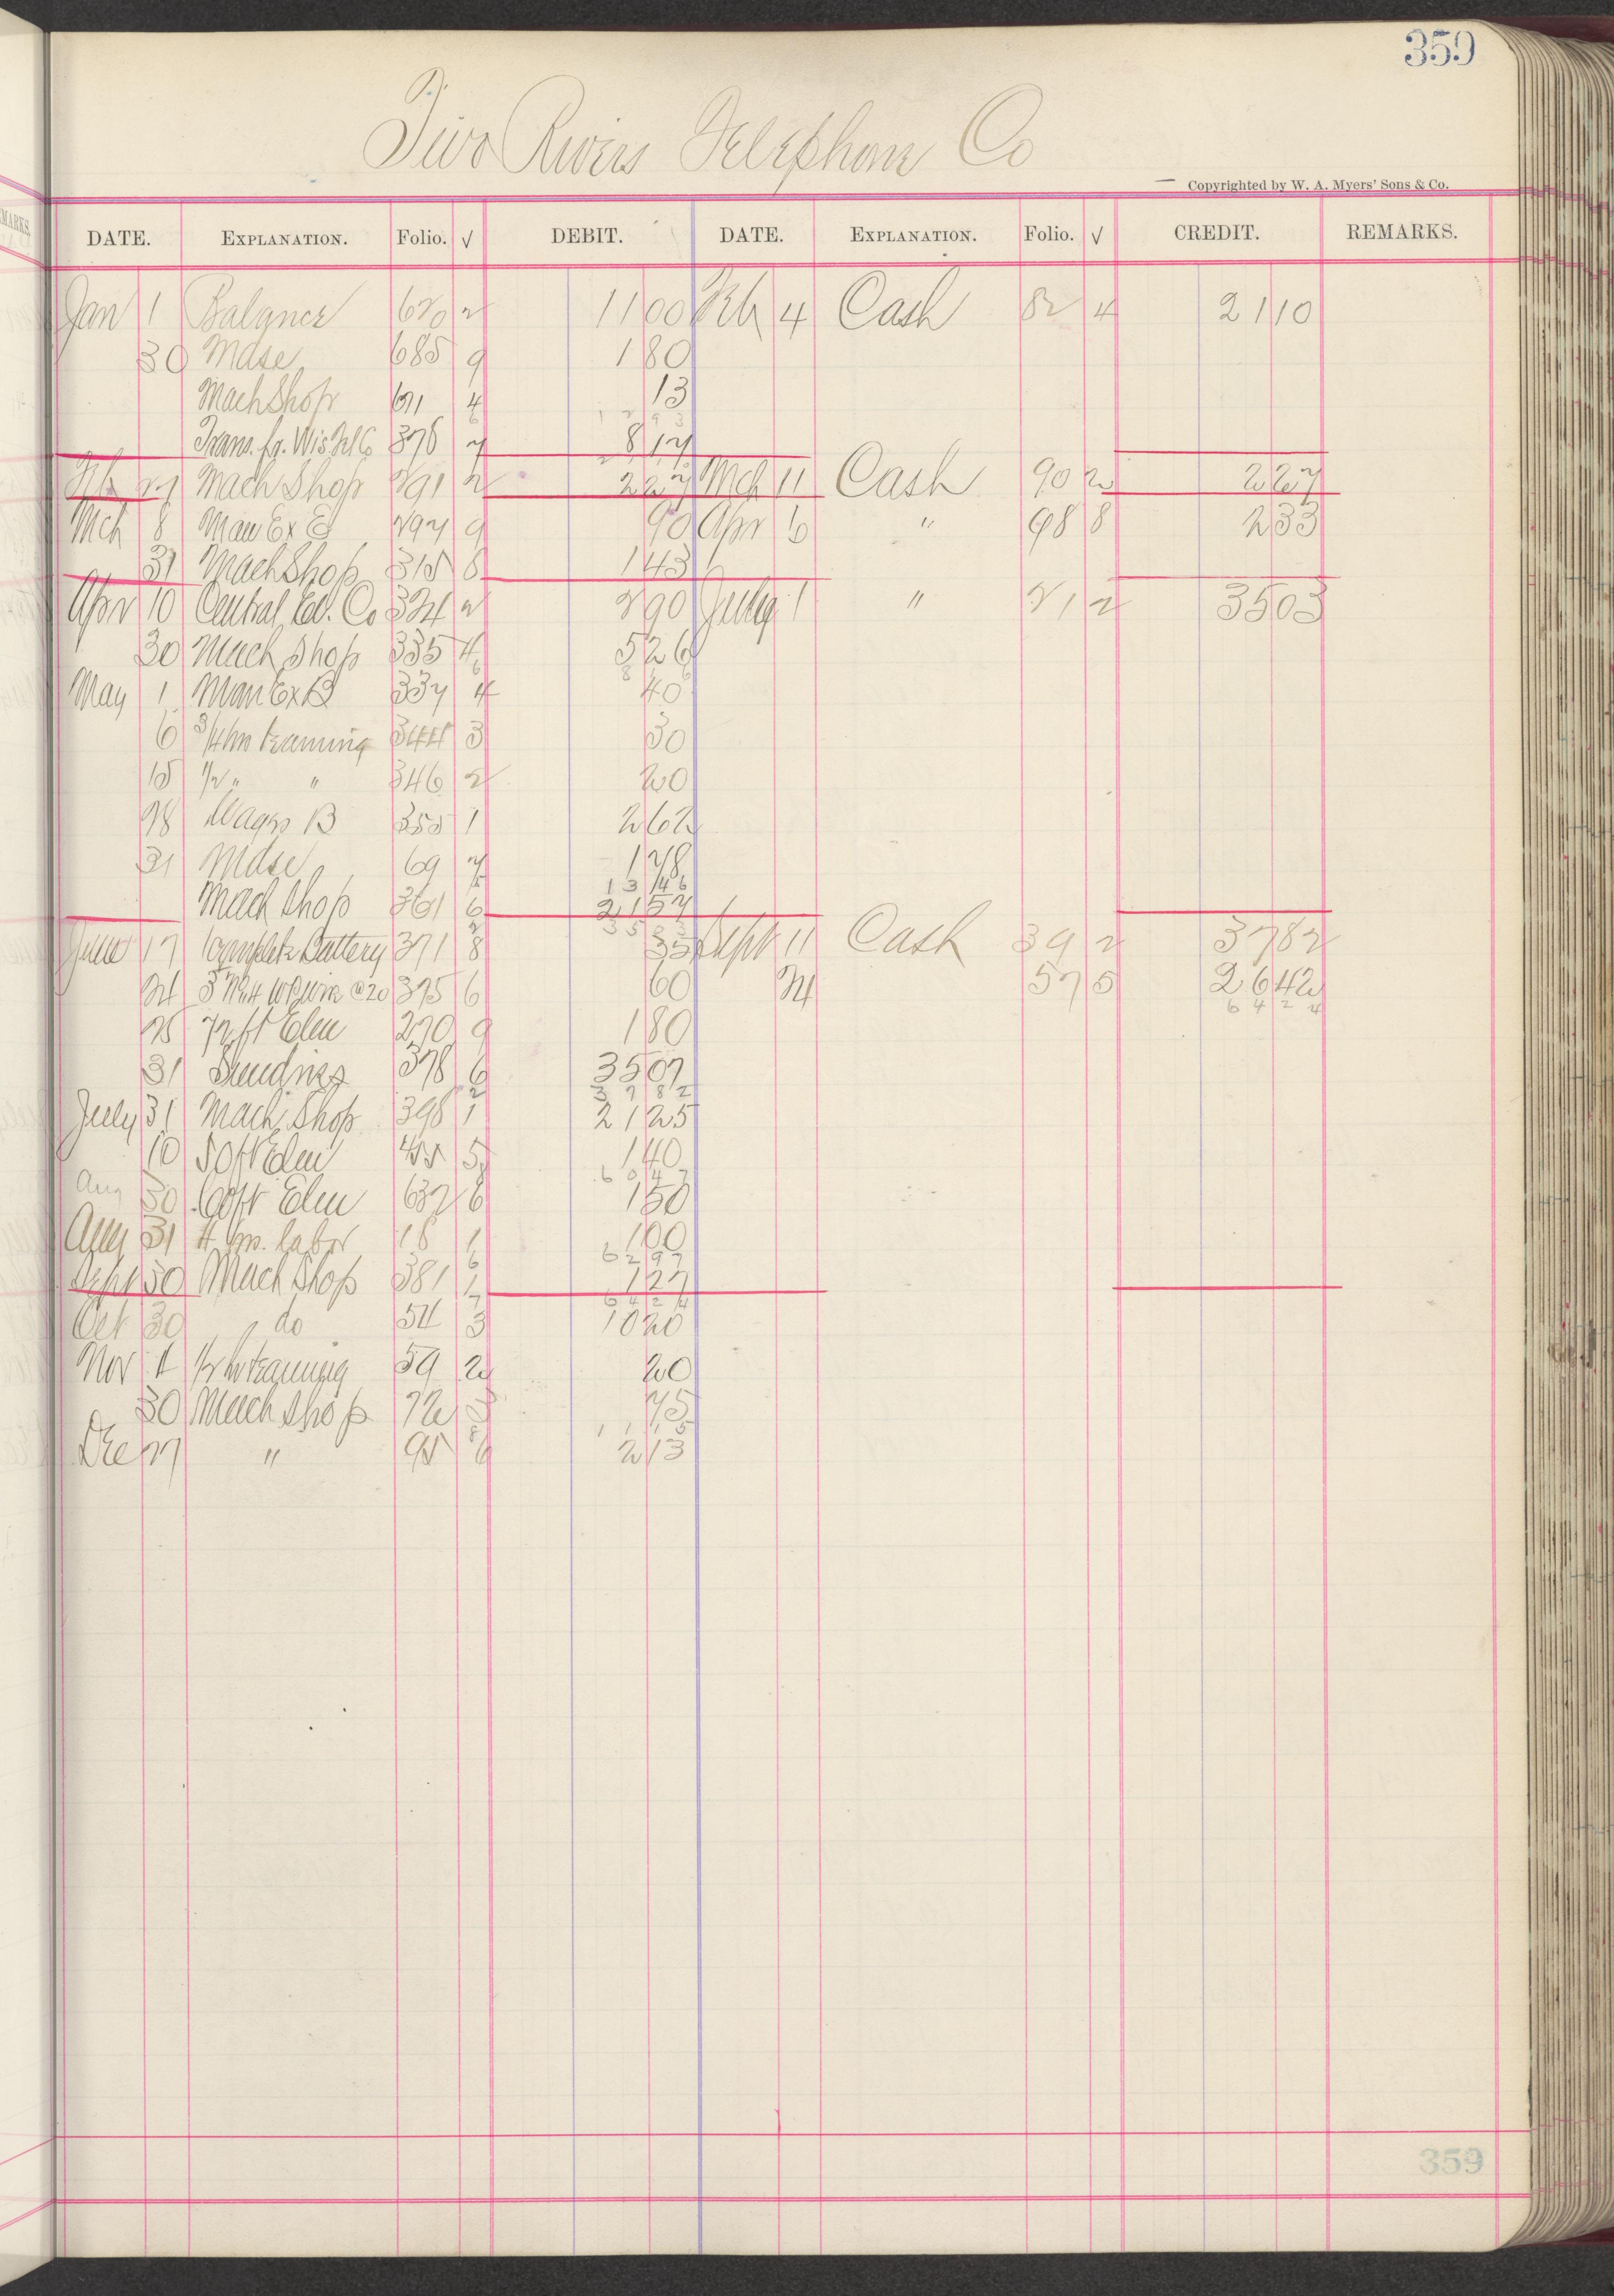 359
Two Rivers Telephone Co
Copyrighted by W. A. Myers' Sons & Co.
DATE. EXPLANATION. Folio. √ DEBIT. DATE. EXPLANATION. Folio. √ CREDIT. REMARKS.
Jan 1 Balance 1100 Feb 4 Cash 82 4 2110
30 Mdse 685 9 180
Mach Shop 691 4 13
Trans. fr. Wis Tel Co 376 7 817
Feb 27 Mach Shop 291 2 227 Mch 11 Cash 90 2 227
Mch 8 Man Ex B 297 9 90 Apr 6 " 98 8 233
31 Mach Shop 315 8 143
Apr 10 Central Co 324 2 290 July 1 " 21 2 3503
30 Mach Shop 335 4 526
May 1 Man Ex B 337 4 40
6 3/4 hr teaming 344 3 30
15 1/2 " " 346 2 20
28 Wages B 355 1 262
31 Mdse 69 7 178
1346
Mach Shop 361 6 2157
3503
June 17 Complete Battery 371 8 35 Sept 11 Cash 39 2 3782
24 375 6 60 24 57 5 2642
6424
25 72 ft Elm 270 9 180
31 Sundries 378 6 3507
3782
July 31 Mach Shop 398 1 2125
10 50 ft Elm 5 140
6047
Aug 30 60 ft Elm 632 6 150
Aug 31 4 hrs. labor 18 1 100
6297
Sept 30 Mach Shop 381 1 127
6424
Oct 30 do 54 3 1020
Nov 4 1/2 hr teaming 59 2 20
30 Mach Shop 72 75
1115
Dec 27 " 95 6 213
359